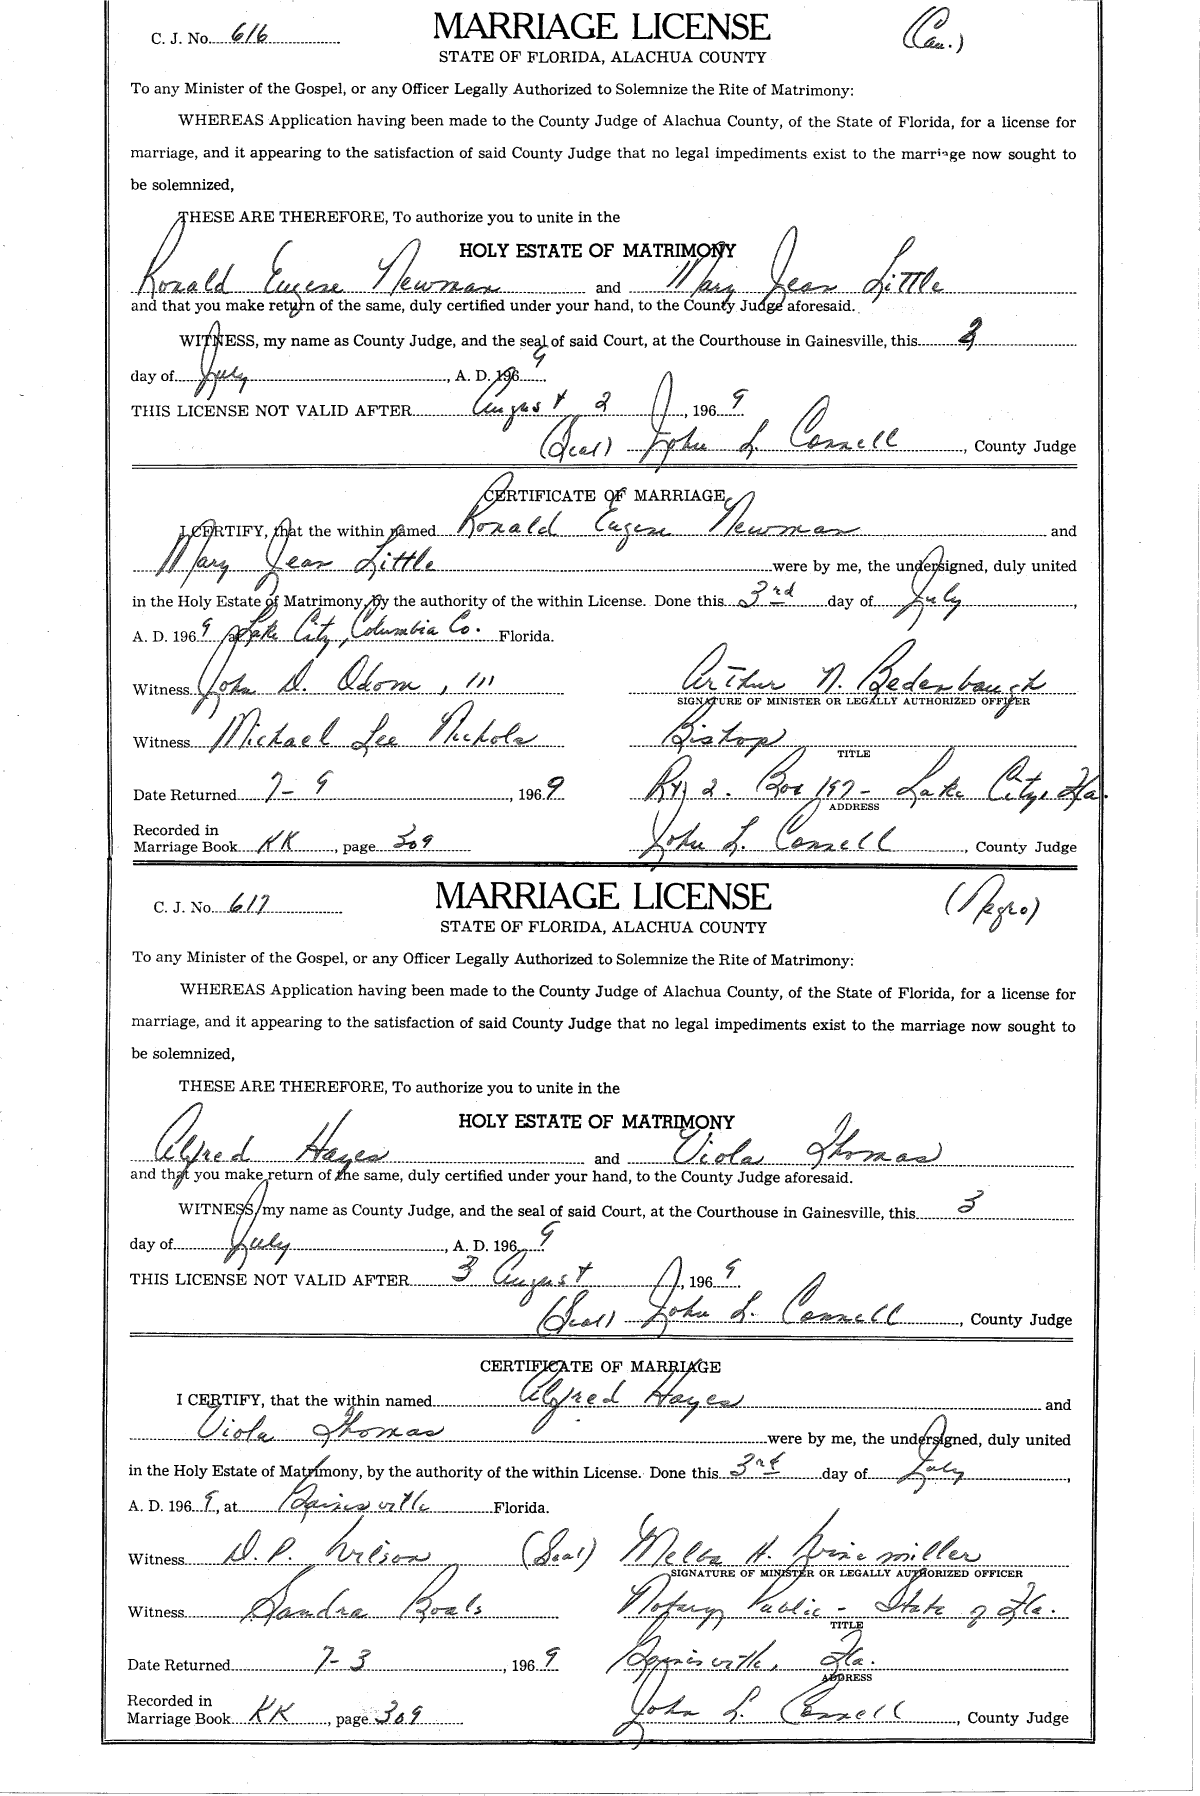 C. J. No. 616 MARRIAGE LICENSE (Cau.)
STATE OF FLORIDA, ALACHUA COUNTY
To any Minister of the Gospel, or any Officer Legally Authorized to Solemnize the Rite of Matrimony:
WHEREAS Application having been made to the County Judge of Alachua County, of the State of Florida, for a license for
marriage, and it appearing to the satisfaction of said County Judge that no legal impediments exist to the marriage now sought to
be solemnized,
THESE ARE THEREFORE, To authorize you to unite in the
HOLY ESTATE OF MATRIMONY
Ronald Eugene Newman and Mary Jean Little
and that you make return of the same, duly certified under your hand, to the County Judge aforesaid.
WITNESS, my name as County Judge, and the seal of said Court, at the Courthouse in Gainesville, this
day of July, A. D. 196 9
THIS LICENSE NOT VALID AFTER August 2, 196 9
(Seal) John L. Connell, County Judge
CERTIFICATE OF MARRIAGE
I CERTIFY, that the within named Ronald Eugene Newman and
Mary Jean Little were by me, the undersigned, duly united
in the Holy Estate of Matrimony, by the authority of the within License. Done this 3rd day of July,
A. D. 196 9 at Lake City, Columbia Co. Florida.
Witness John D. Odom, III Arthur N. Bedenbaugh
SIGNATURE OF MINISTER OR LEGALLY AUTHORIZED OFFICER
Witness Michael Lee Nichols Bishop
TITLE
Date Returned 7-9, 196 9 Rt. 2. Box 197- Lake City, Fla.
ADDRESS
Recorded in
Marriage Book KK, page 309 John L. Connell, County Judge
C. J. No. 617 MARRIAGE LICENSE (Negro)
STATE OF FLORIDA, ALACHUA COUNTY
To any Minister of the Gospel, or any Officer Legally Authorized to Solemnize the Rite of Matrimony:
WHEREAS Application having been made to the County Judge of Alachua County, of the State of Florida, for a license for
marriage, and it appearing to the satisfaction of said County Judge that no legal impediments exist to the marriage now sought to
be solemnized,
THESE ARE THEREFORE, To authorize you to unite in the
HOLY ESTATE OF MATRIMONY
Alfred Hayes and Viola Thomas
and that you make return of the same, duly certified under your hand, to the County Judge aforesaid.
WITNESS, my name as County Judge, and the seal of said Court, at the Courthouse in Gainesville, this 3
day of July, A. D. 196 9
THIS LICENSE NOT VALID AFTER 3 August, 196 9
(Seal) John L. Connell, County Judge
CERTIFICATE OF MARRIAGE
I CERTIFY, that the within named Alfred Hayes and
Viola Thomas were by me, the undersigned, duly united
in the Holy Estate of Matrimony, by the authority of the within License. Done this 3rd day of July,
A. D. 196 9, at Gainesville Florida.
Witness D. P. Wilson (Seal) Melba H. Winemiller
SIGNATURE OF MINISTER OR LEGALLY AUTHORIZED OFFICER
Witness Sandra Boals Notary Public - State of Fla.
TITLE
Date Returned 7-3, 196 9 Gainesville, Fla.
ADDRESS
Recorded in
Marriage Book KK, page 309 John L. Connell, County Judge